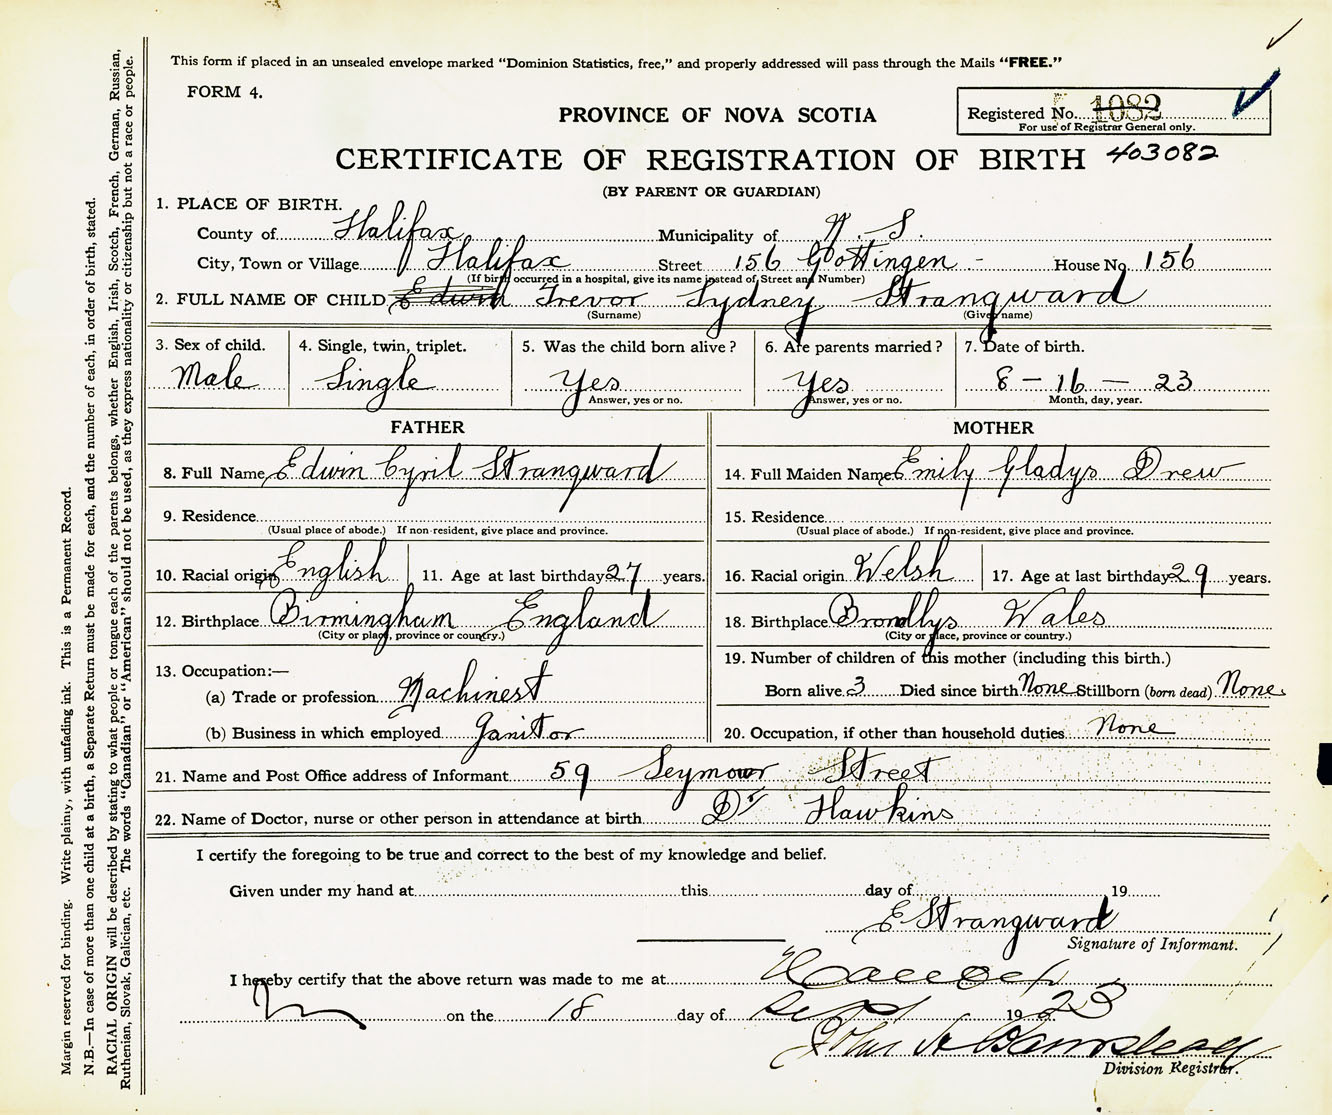 This form if placed in an unsealed envelope marked "Dominion Statistics, free," and properly addressed will pass through the Mails "FREE."
FORM 4.
PROVINCE OF NOVA SCOTIA
Registered No. 1082
For use of Registrar General only.
CERTIFICATE OF REGISTRATION OF BIRTH 403082
(BY PARENT OR GUARDIAN)
1. PLACE OF BIRTH.
County of Halifax Municipality of N. S.
City, Town or Village Halifax Street 156 Gottingen - House No. 156
(If birth occurred in a hospital, give its name instead of Street and Number)
2. FULL NAME OF CHILD Edwin Trevor Sydney Strangward
(Surname) (Given name)
3. Sex of child. 4. Single, twin, triplet. 5. Was the child born alive? 6. Are parents married? 7. Date of birth.
Male Single Yes Yes 8 - 16 - 23
Answer, yes or no. Answer, yes or no. Month, day, year.
FATHER MOTHER
8. Full Name Edwin Cyril Strangward 14. Full Maiden Name Emily Gladys Drew
9. Residence 15. Residence
(Usual place of abode.) If non-resident, give place and province. (Usual place of abode.) If non-resident, give place and province.
10. Racial origin English 11. Age at last birthday 27 years. 16. Racial origin Welsh 17. Age at last birthday 29 years.
12. Birthplace Birmingham England 18. Birthplace Wales
(City or place, province or country.) (City or place, province or country.)
13. Occupation:— 19. Number of children of this mother (including this birth.)
(a) Trade or profession Machinest Born alive 3 Died since birth None Stillborn (born dead) None
(b) Business in which employed Janitor 20. Occupation, if other than household duties None
21. Name and Post Office address of Informant 59 Seymour Street
22. Name of Doctor, nurse or other person in attendance at birth Dr Hawkins
I certify the foregoing to be true and correct to the best of my knowledge and belief.
Given under my hand at this day of 19
E Strangward
Signature of Informant.
I hereby certify that the above return was made to me at
on the 18 day of Sept 1923
John
Division Registrar.
Margin reserved for binding. Write plainy, with unfading ink. This is a Permanent Record.
N.B.—In case of more than one child at a birth, a Separate Return must be made for each, and the number of each, in order of birth, stated.
RACIAL ORIGIN will be described by stating to what people or tongue each of the parents belongs, whether English, Irish, Scotch, French, German, Russian,
Ruthenian, Slovak, Galician, etc. The words "Canadian" or "American" should not be used, as they express nationality or citizenship but not a race or people.